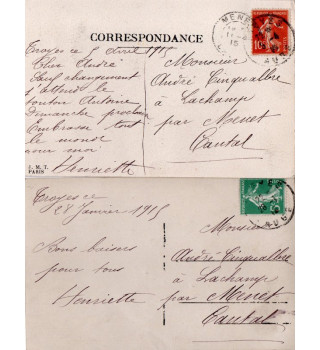 CORRESPONDANCE
Troyes ce 5 Avril 1915
Cher André
Sauf changement
j'attends le
tonton Antoine
dimanche prochain
Embrasse tout
le monde
pour moi.
Henriette
J. M. T.
PARIS
Monsieur
André Cinqualbre
à Lachamp
par Menet
Cantal
10
Troyes ce
28 Janvier 1915
Bons baisers
pour tous
Henriette
Monsieur
André Cinqualbre
à Lachamp
par Menet
Cantal